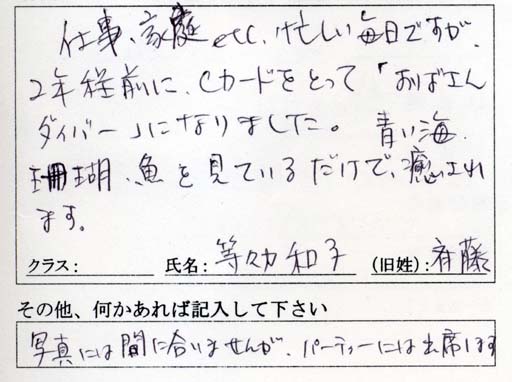 仕事、家庭etc、忙しい毎日ですが、
2年程前に、Cカードをとって「おばさん
ダイバー」になりました。 青い海、
珊瑚、魚を見ているだけで、癒され
ます。
クラス： 氏名：等々力 和子 （旧姓）：斉藤
その他、何かあれば記入して下さい
写真には間に合いませんが、パーティーには出席します